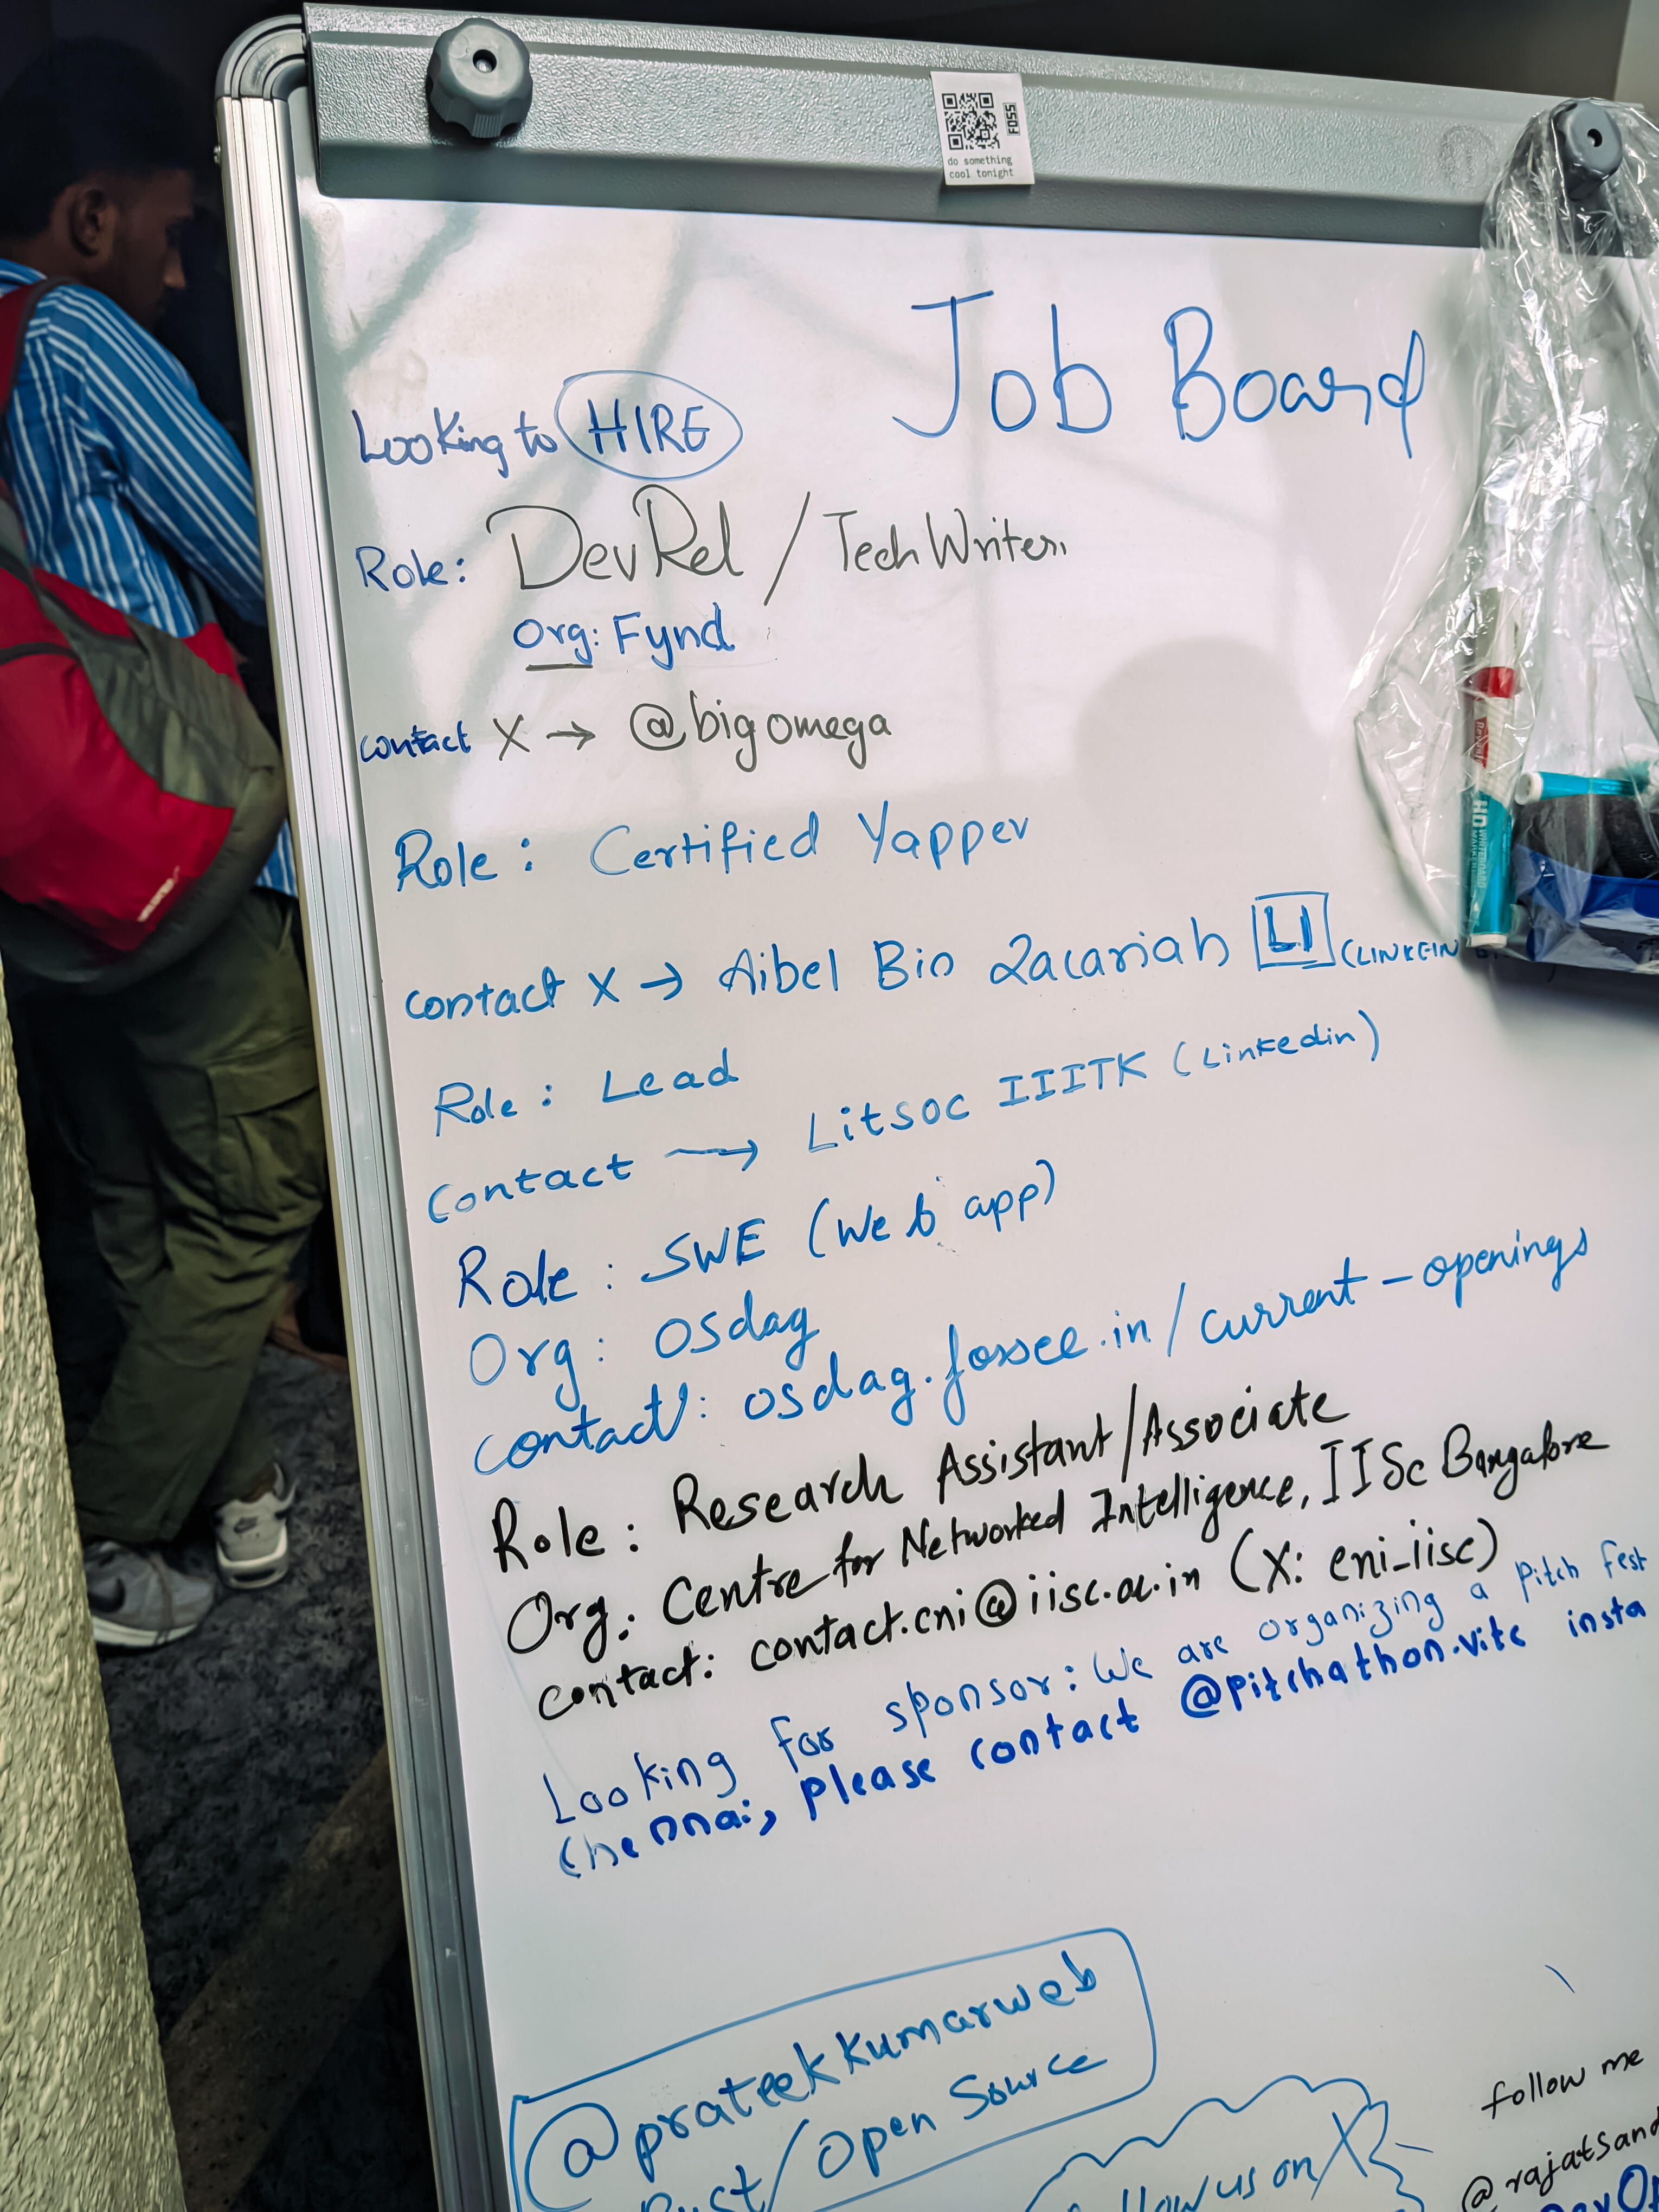 FOSS
do something
cool tonight
Job Board
Looking to HIRE
Role: DevRel / Tech Writer
Org: Fynd
contact X → @bigomega
Role: Certified Yapper
contact X → Aibel Bin Zacariah LI (LINKEIN
Role: Lead
contact → Litsoc IIITK (Linkedin)
Role: SWE (Web app)
Org: Osdag
contact: osdag.fossee.in/current-openings
Role: Research Assistant/Associate
Org: Centre for Networked Intelligence, IISc Bangalore
contact: contact.cni@iisc.ac.in (X: cni_iisc)
Looking for sponsor: We are organizing a pitch fest
Chennai, please contact @pitchathon.vitc insta
@prateekkumarweb
Rust/Open Source
follow me
us on X
@rajatsand